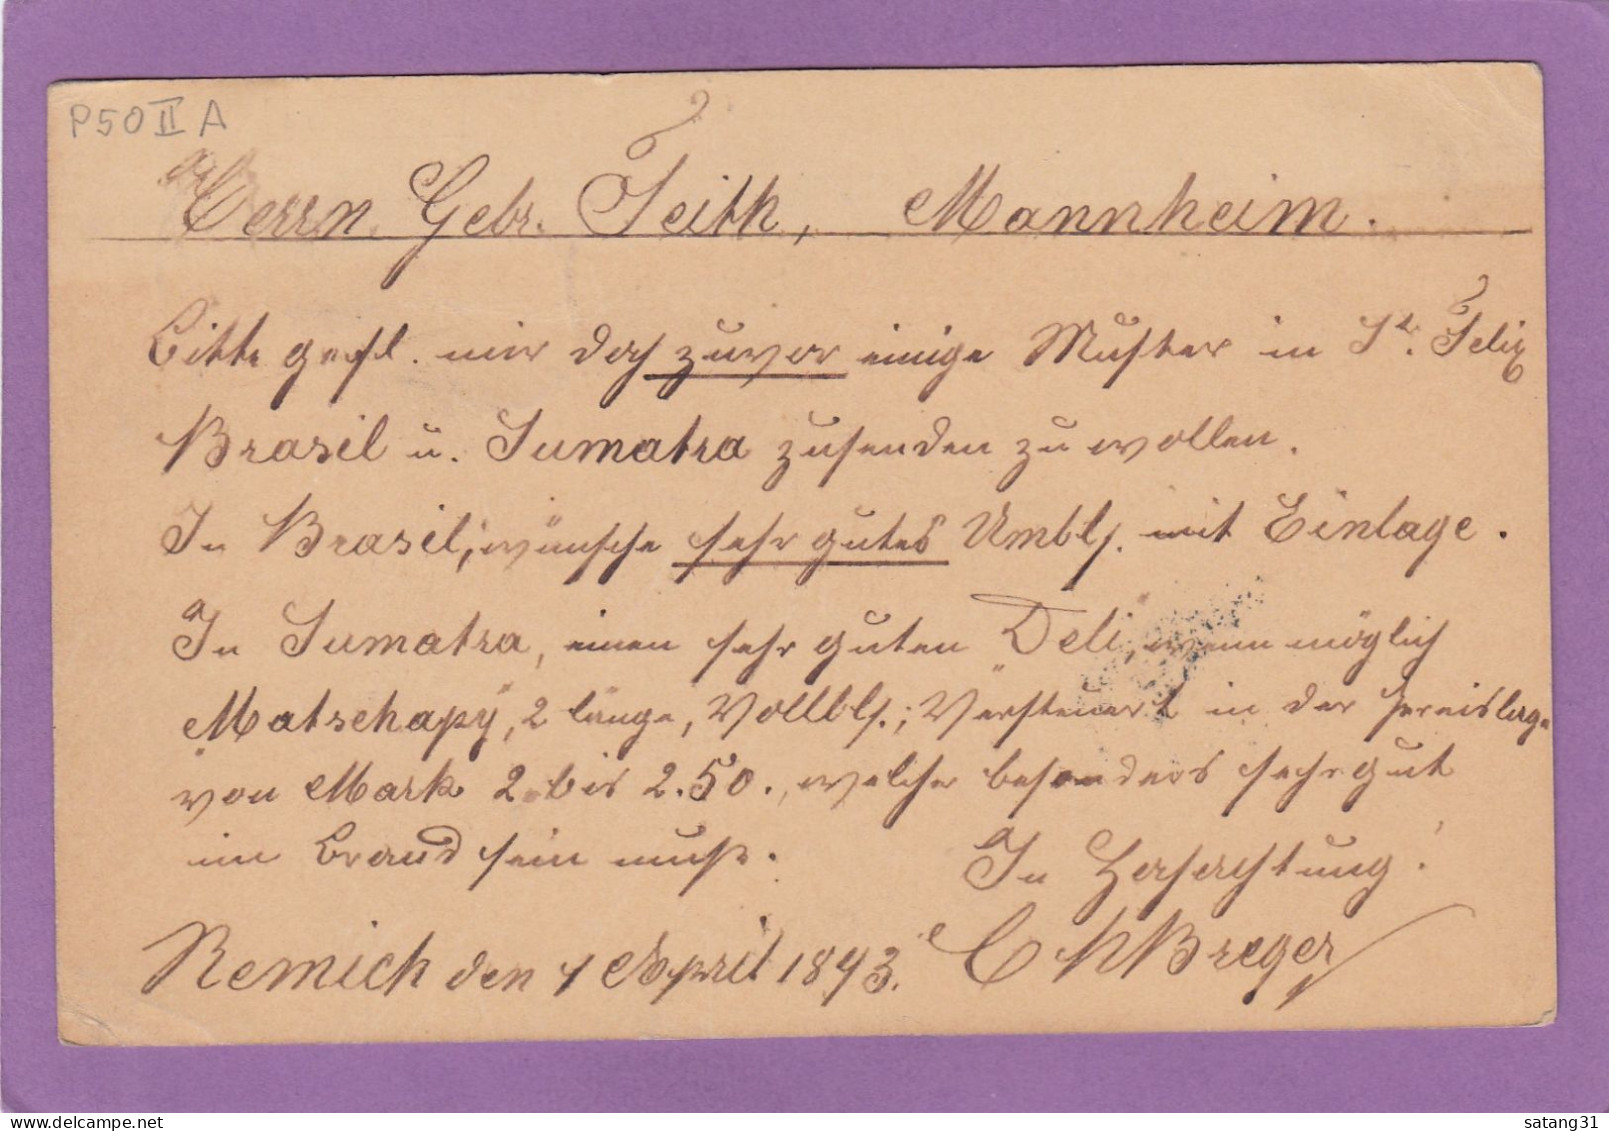 P50 II A
Herrn Gebr. Feith, Mannheim.
Bitte gefl. mir doch zuvor einige Muster in St. Felix
Brasil u. Sumatra zusenden zu wollen.
In Brasil, wünsche sehr gutes Umbl. mit Einlage.
In Sumatra, einen sehr guten Deli, wenn möglich
Matschapy, 2 länge, Vollbl.; Versteuert in der Preislage
von Mark 2 bis 2.50., welcher besonders sehr gut
im Brand sein muß.
In Hochachtung!
Remich den 1 April 1893. Breger
satang31